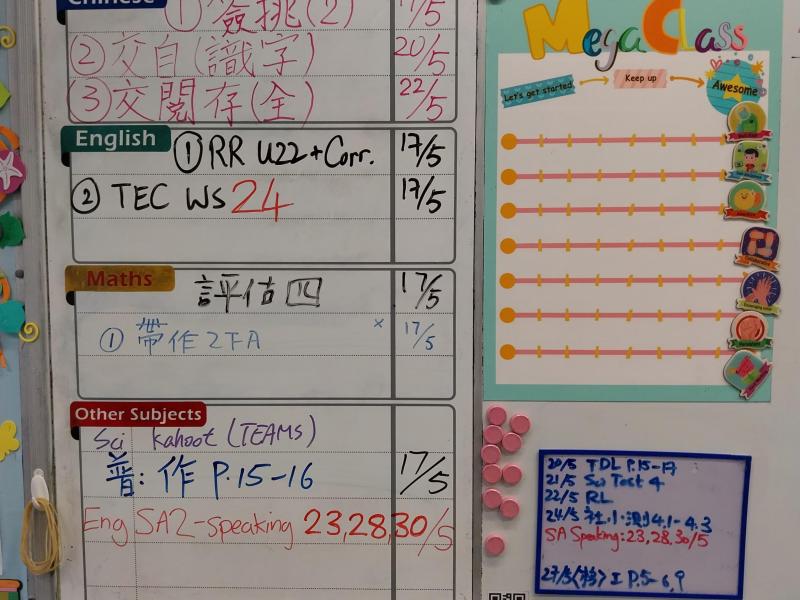 Chinese
① 簽挑(2) 17/5
② 交自(識字) 20/5
③ 交閱存(全) 22/5
English
① RR U22+Corr. 17/5
② TEC WS 24 17/5
Maths
評估四 17/5
① 帶作2下A × 17/5
Other Subjects
Sci Kahoot (TEAMS)
普: 作 P.15-16 17/5
Eng SA2-speaking 23,28,30/5
Mega Class
Let's get started
Keep up
Awesome
20/5 TDL P.15-17
21/5 Sci Test 4
22/5 RL
24/5 社.小.測4.1-4.3
SA Speaking: 23, 28, 30/5
27/5 工 P.5-6, 9